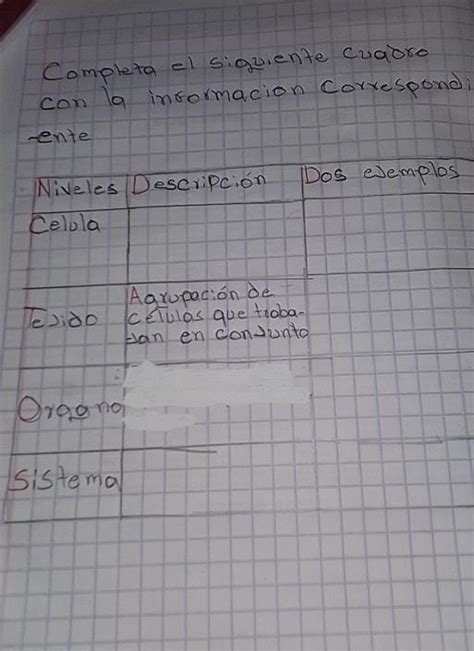 Completa el siguiente cuadro
con la informacion correspondi
-ente
Niveles Descripción Dos ejemplos
Celula
Agrupación de
Tejido células que traba-
Jan en conjunto
Organo
Sistema